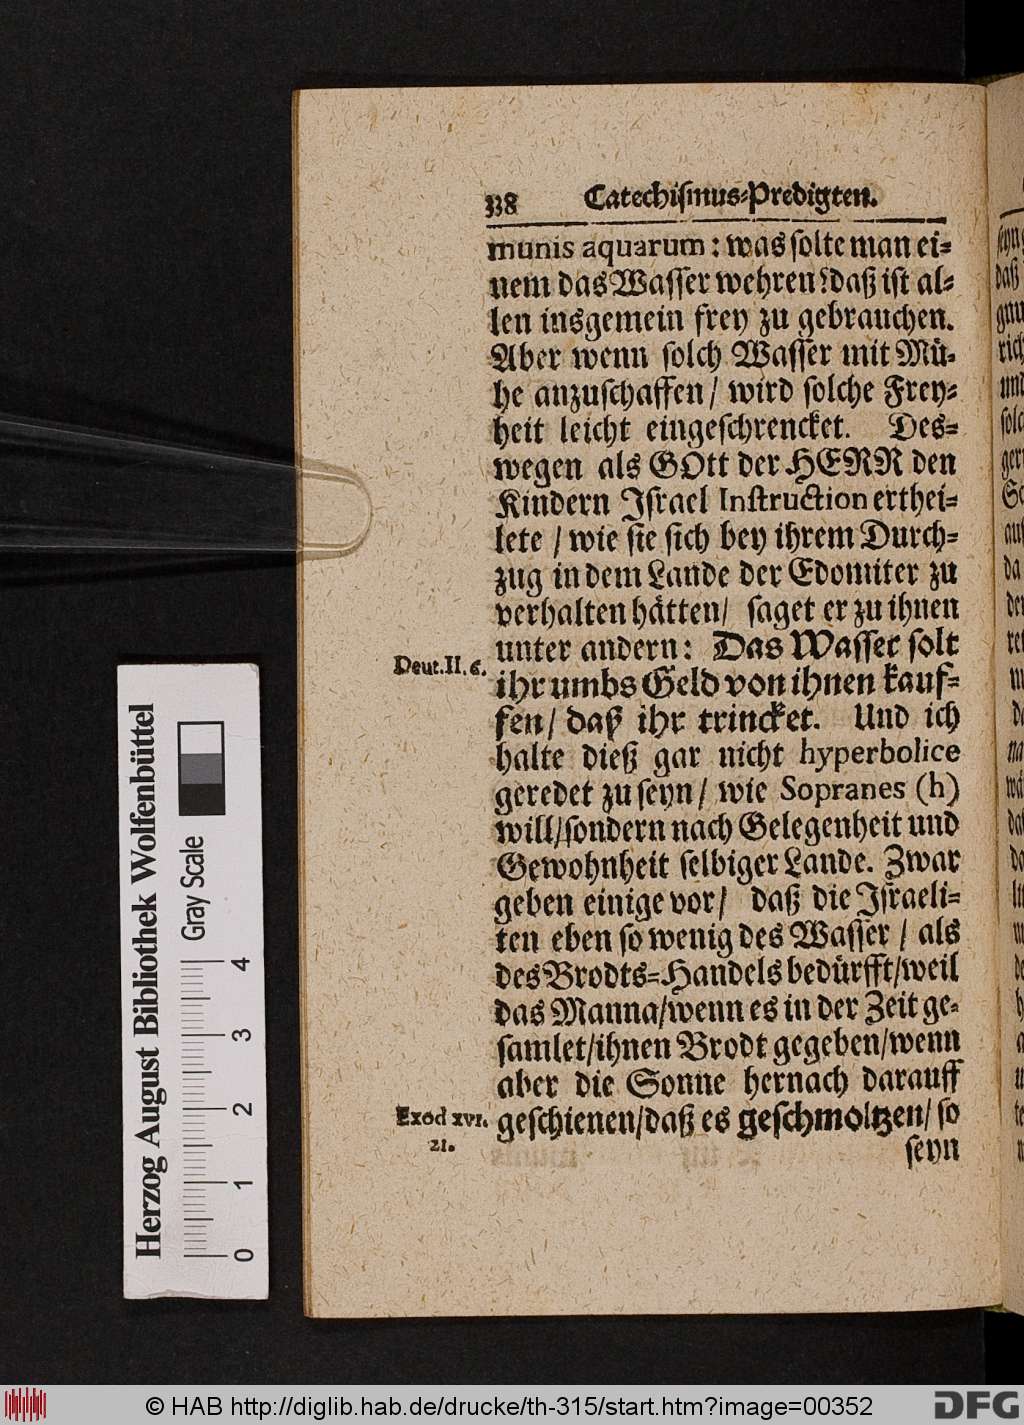 338 Catechiſmus-Predigten.
munis aquarum: was ſolte man ei-
nem das Waſſer wehren? daß iſt al-
len insgemein frey zu gebrauchen.
Aber wenn ſolch Waſſer mit Mü-
he anzuſchaffen/ wird ſolche Frey-
heit leicht eingeſchrencket. Des-
wegen als GOtt der HERR den
Kindern Iſrael Inſtruction erthei-
lete / wie ſie ſich bey ihrem Durch-
zug in dem Lande der Edomiter zu
verhalten hätten/ ſaget er zu ihnen
unter andern: Das Waſſer ſolt
Deut. II. 6.
ihr umbs Geld von ihnen kauf-
fen/ daß ihr trincket. Und ich
halte dieß gar nicht hyperbolice
geredet zu ſeyn/ wie Sopranes (h)
will/ ſondern nach Gelegenheit und
Gewohnheit ſelbiger Lande. Zwar
geben einige vor/ daß die Iſraeli-
ten eben ſo wenig des Waſſer / als
des Brodts-Handels bedürfft/ weil
das Manna/ wenn es in der Zeit ge-
ſamlet/ ihnen Brodt gegeben/ wenn
aber die Sonne hernach darauff
Exod xvi. 21.
geſchienen/ daß es geſchmoltzen/ ſo
ſeyn
Herzog August Bibliothek Wolfenbüttel
Gray Scale
0 1 2 3 4
© HAB http://diglib.hab.de/drucke/th-315/start.htm?image=00352
DFG